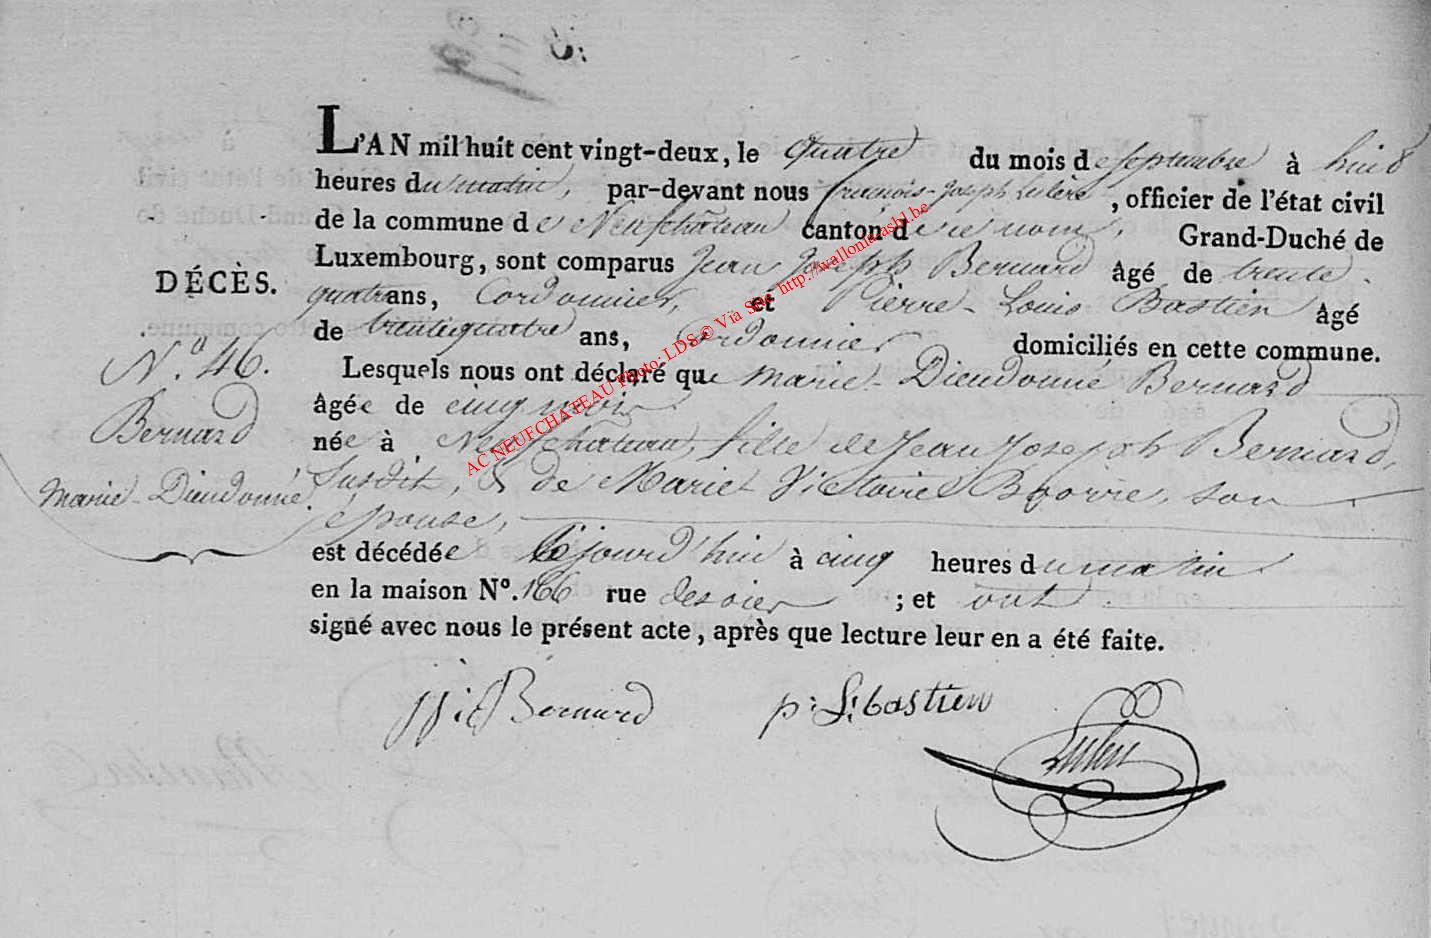 L'AN mil huit cent vingt-deux, le quatre du mois de septembre à huit
heures du matin, par-devant nous françois-Joseph , officier de l'état civil
de la commune de Neufchâteau canton de ce nom, Grand-Duché de
Luxembourg, sont comparus Jean Joseph Bernard âgé de trente
quatre ans, Cordonnier, et Pierre-Louis Bastien âgé
de trentequatre ans, Cordonnier domiciliés en cette commune.
Lesquels nous ont déclaré que marie-Dieudonné Bernard
âgée de cinq mois
née à Neufchateau, fille de Jean Joseph Bernard,
susdit, & de Marie-Victoire son
épouse,
est décédée jourd'hui à cinq heures du matin
en la maison N°. 166 rue ; et ont
signé avec nous le présent acte, après que lecture leur en a été faite.
DÉCÈS.
N.° 46.
Bernard
marie-Dieudonné.
Bernard
p: L: bastien
AC NEUFCHATEAU Photo: LDS © Via Site http://wallonia.asbl.be